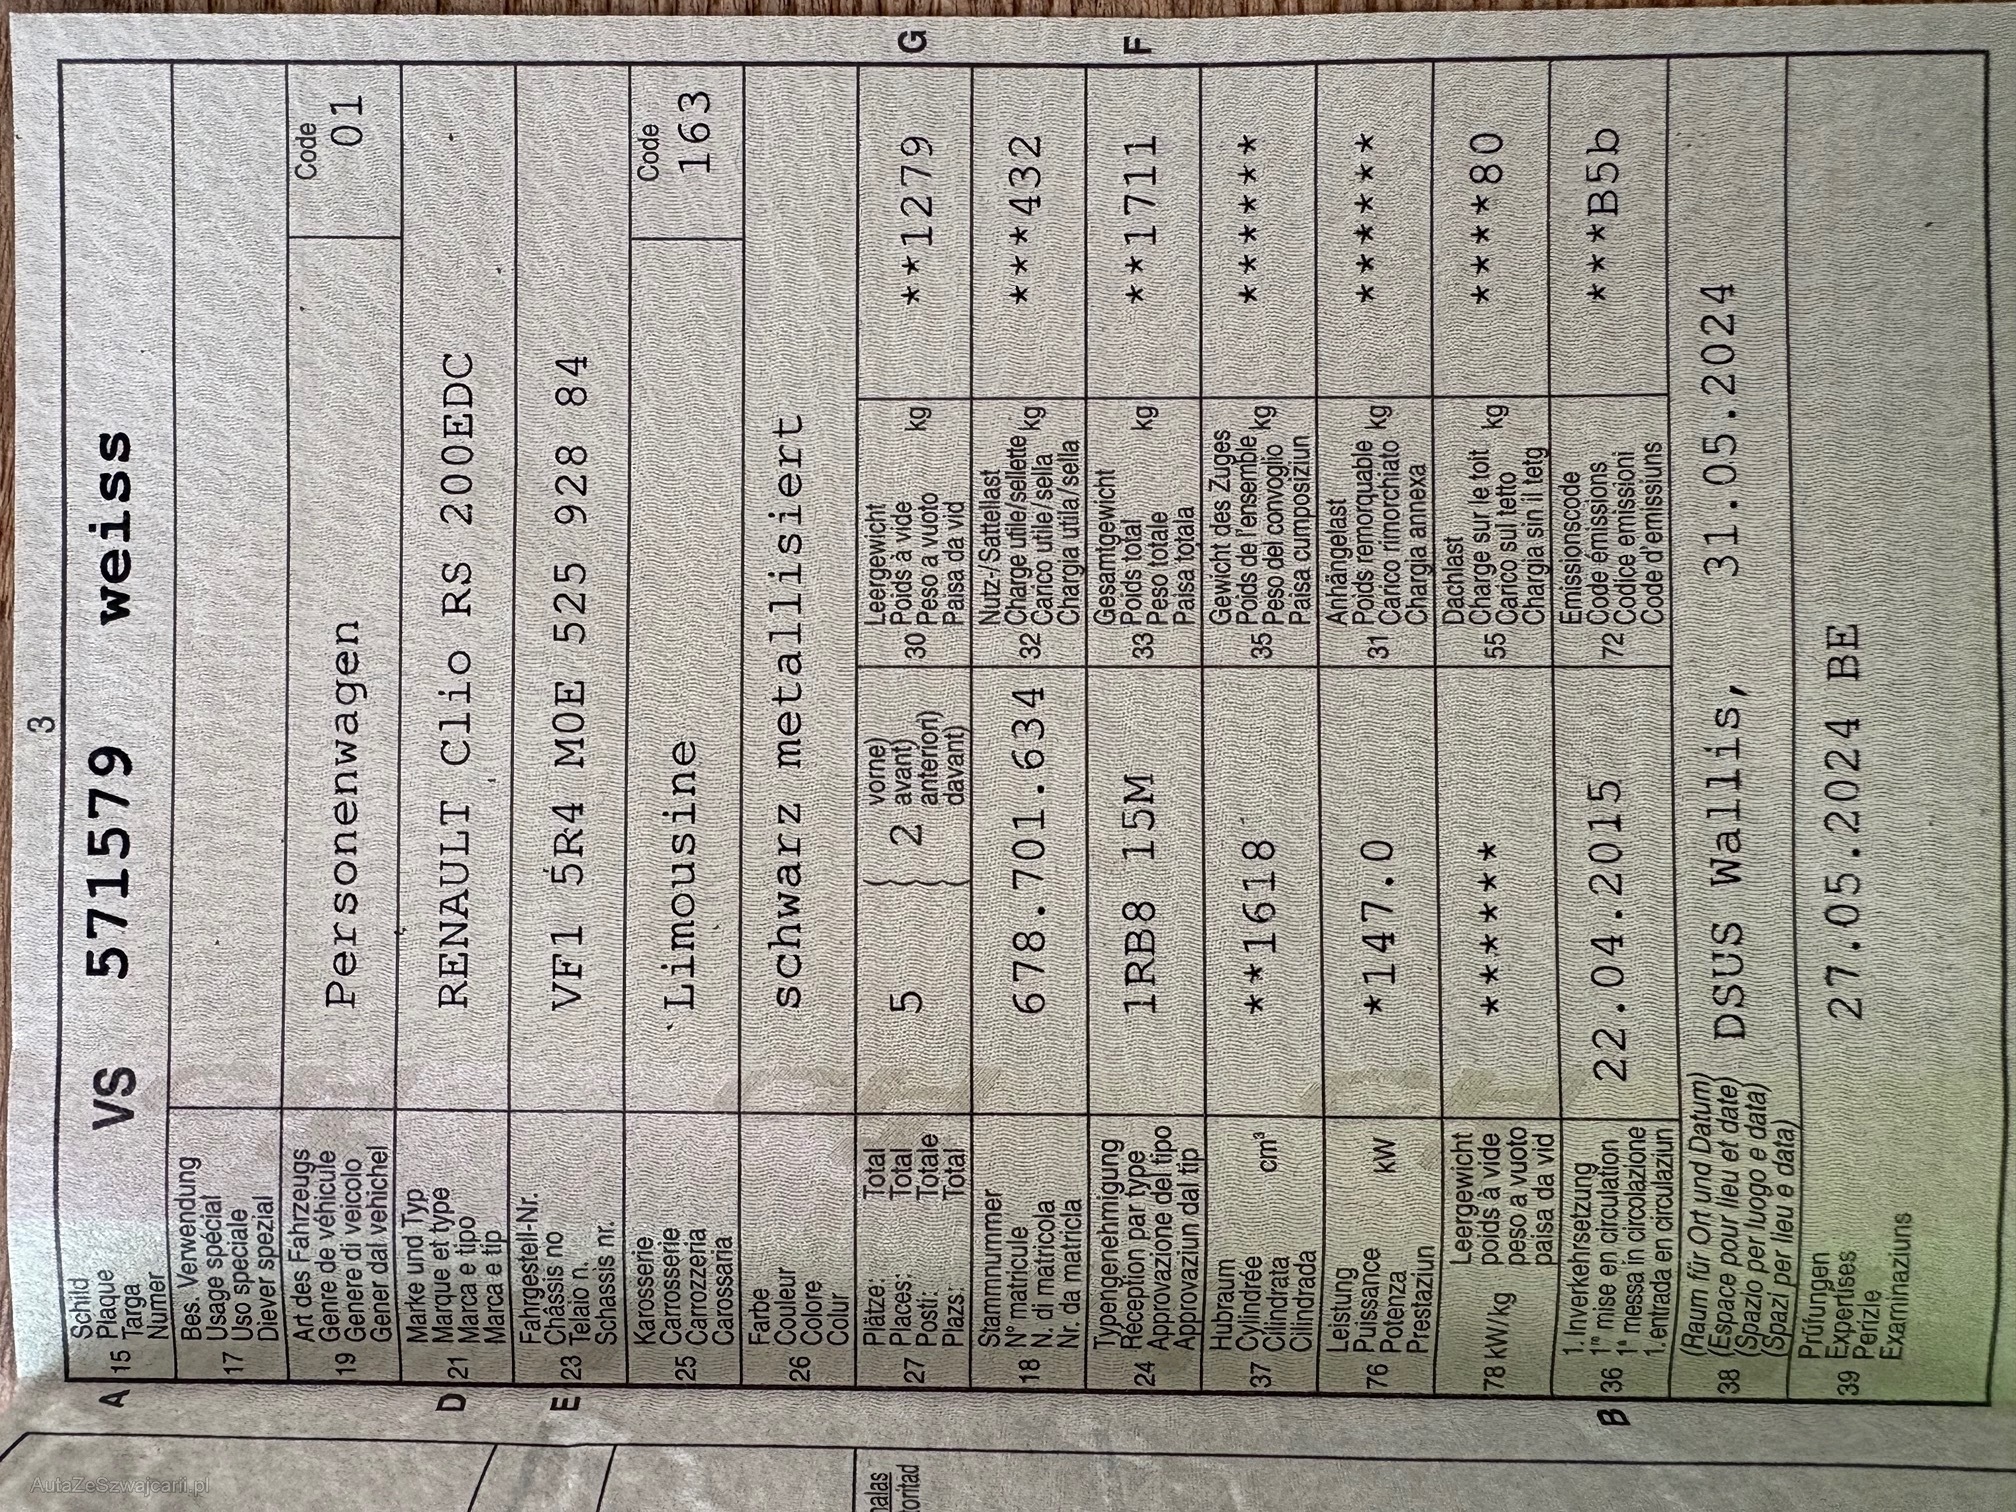 3
A 15 Schild
Plaque
Targa
Numer
VS 571579 weiss
17 Bes. Verwendung
Usage spécial
Uso speciale
Diever spezial
19 Art des Fahrzeugs
Genre de véhicule
Genere di veicolo
Gener dal vehichel
Personenwagen
Code
01
D 21 Marke und Typ
Marque et type
Marca e tipo
Marca e tip
RENAULT Clio RS 200EDC
E 23 Fahrgestell-Nr.
Châssis no
Telaio n.
Schassis nr.
VF1 5R4 M0E 525 928 84
25 Karosserie
Carrosserie
Carrozzeria
Carossaria
Limousine
Code
163
26 Farbe
Couleur
Colore
Colur
schwarz metallisiert
27 Plätze: Total
Places: Total
Posti: Totale
Plazs: Total
5 { 2 vorne)
avant)
anteriori)
davant)
30 Leergewicht
Poids à vide
Peso a vuoto kg
Paisa da vid
**1279
G
18 Stammnummer
N° matricule
N. di matricola
Nr. da matricla
678.701.634
32 Nutz-/Sattellast
Charge utile/sellette
Carico utile/sella kg
Chargia utila/sella
***432
24 Typengenehmigung
Réception par type
Approvazione del tipo
Approvaziun dal tip
1RB8 15M
33 Gesamtgewicht
Poids total
Peso totale kg
Paisa totala
**1711
F
37 Hubraum
Cylindrée
Cilindrata cm³
Cilindrada
**1618
35 Gewicht des Zuges
Poids de l'ensemble
Peso del convoglio kg
Paisa cumposiziun
*******
76 Leistung
Puissance
Potenza kW
Prestaziun
*147.0
31 Anhängelast
Poids remorquable
Carico rimorchiato kg
Chargia annexa
*******
78 kW/kg Leergewicht
poids à vide
peso a vuoto
paisa da vid
*******
55 Dachlast
Charge sur le toit
Carico sul tetto kg
Chargia sin il tetg
*****80
B 36 1. Inverkehrsetzung
1re mise en circulation
1a messa in circolazione
1. entrada en circulaziun
22.04.2015
72 Emissionscode
Code émissions
Codice emissioni
Code d'emissiuns
****B5b
38 (Raum für Ort und Datum)
(Espace pour lieu et date)
(Spazio per luogo e data)
(Spazi per lieu e data)
DSUS Wallis, 31.05.2024
39 Prüfungen
Expertises
Perizie
Examinaziuns
27.05.2024 BE
AutaZeSzwajcarii.pl